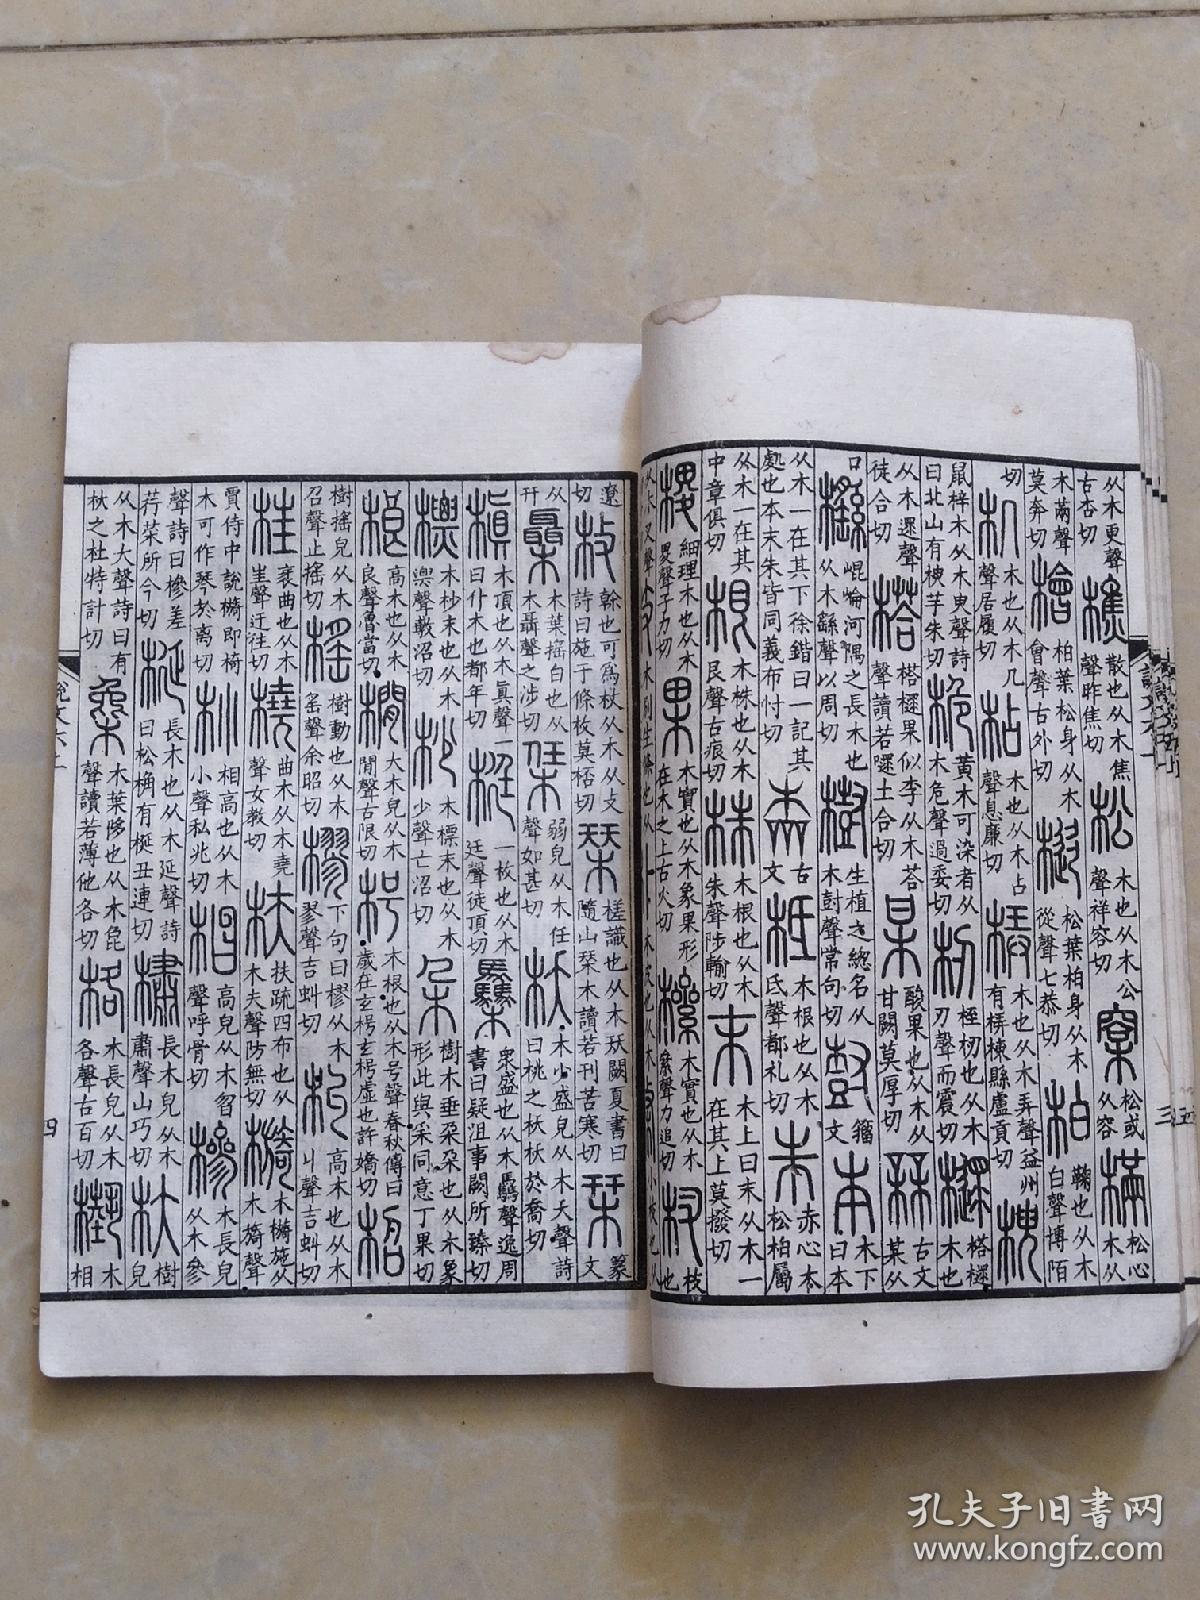 从木更聲古杏切 樵 散也从木焦聲昨焦切 松 木也从木公聲祥容切 㮤 松或从容 樠 松心木从
木㒼聲莫奔切 檜 柏葉松身从木會聲古外切 樅 松葉柏身从木從聲七恭切 柏 鞠也从木白聲博陌
切 机 木也从木几聲居履切 枮 木也从木占聲息廉切 梇 木也从木弄聲益州有梇棟縣盧貢切 楰
鼠梓木从木臾聲詩曰北山有楰羊朱切 桅 黃木可染者从木危聲過委切 杒 桎杒也从木刃聲而震切 榙木也
从木遝聲徒合切 榙 榙果似李从木荅聲讀若土合切 某 酸果也从木从甘闕莫厚切 槑 古文某从
口 櫾 崐崘河隅之長木也从木繇聲以周切 樹 生植之總名从木尌聲常句切 尌 籒文 本 木下曰本
从木一在其下徐鍇曰一記其處也本末朱皆同義布忖切 古文 柢 木根也从木氐聲都礼切 朱 赤心木松柏屬
从木一在其中章俱切 根 木株也从木艮聲古痕切 株 木根也从木朱聲陟輸切 末 木上曰末从木一在其上莫撥切
㮨 細理木也从木畟聲子力切 果 木實也从木象果形在木之上古火切 樏 木實也从木絫聲力追切 杈 枝也
遼切 枚 榦也可爲杖从木从攴詩曰施于條枚莫桮切 栞 槎識也从木㺲闕夏書曰隨山栞木讀若刊苦寒切 栞 篆文
从幵 木葉搖白也从木聶聲之涉切 集 弱皃从木任聲如甚切 枖 木少盛皃从木夭聲詩曰桃之枖枖於喬切
槇 木頂也从木真聲一曰仆木也都年切 梃 一枚也从木廷聲徒頂切 衆盛也从木驫聲逸周書曰疑沮事闕所臻切
標 木杪末也从木㶾聲敷沼切 杪 木標末也从木少聲亡沼切 朵 樹木垂朵朵也从木象形此與采同意丁果切
桹 高木也从木良聲魯當切 橌 大木皃从木閒聲古限切 枵 木根也从木号聲春秋傳曰歲在玄枵玄枵虛也許嬌切 柖
樹搖皃从木召聲止搖切 榣 樹動也从木䍃聲余昭切 樛 下句曰樛从木翏聲吉虯切 朻 高木也从木丩聲吉虯切
枉 衺曲也从木㞷聲迂往切 橈 曲木从木堯聲女教切 枎 扶疏四布也从木夫聲防無切 檹 木檹施从木旖聲
賈侍中說檹即椅木可作琴於离切 朻 相高也从木小聲私兆切 㮧 高皃从木曶聲呼骨切 槮 木長皃从木參
聲詩曰槮差荇菜所今切 梴 長木也从木延聲詩曰松桷有梴丑連切 橚 長木皃从木肅聲山巧切 杕 樹皃
从木大聲詩曰有杕之杜特計切 木葉陊也从木㲋聲讀若薄他各切 格 木長皃从木各聲古百切 槸 木相
說文六上
四
三
孔夫子旧书网
www.kongfz.com